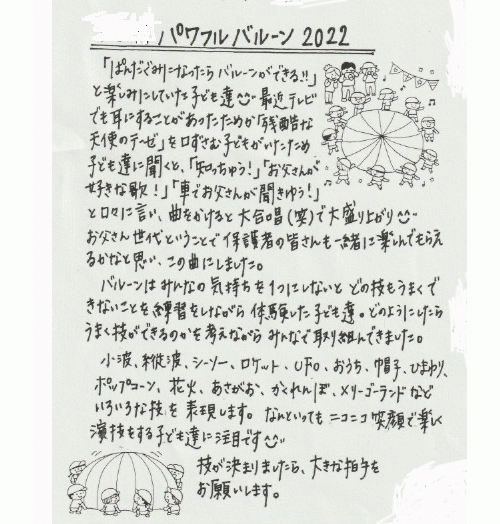 パワフルバルーン 2022
「ぱんだぐみになったらバルーンができる!!」
と楽しみにしていた子ども達 最近テレビ
でも耳にすることがあったためか「残酷な
天使のテーゼ」を口ずさむ子どもがいたため
子ども達に聞くと、「知っちゅう!」「お父さんが
好きな歌!」「車でお父さんが聞きゆう!」
と口々に言い、曲をかけると大合唱(笑)で大盛り上がり
お父さん世代ということで保護者の皆さんも一緒に楽しんでもらえ
るかなと思い、この曲にしました。
バルーンはみんなの気持ちを1つにしないとどの技もうまくで
きないことを練習をしながら体験した子ども達。どのようにしたら
うまく技ができるのかを考えながらみんなで取り組んできました。
小波、縦波、シーソー、ロケット、UFO、おうち、帽子、ひまわり、
ポップコーン、花火、あさがお、かくれんぼ、メリーゴーランドなど
いろいろな技を表現します。なんといってもニコニコ笑顔で楽しく
演技をする子ども達に注目です
技が決まりましたら、大きな拍手を
お願いします。